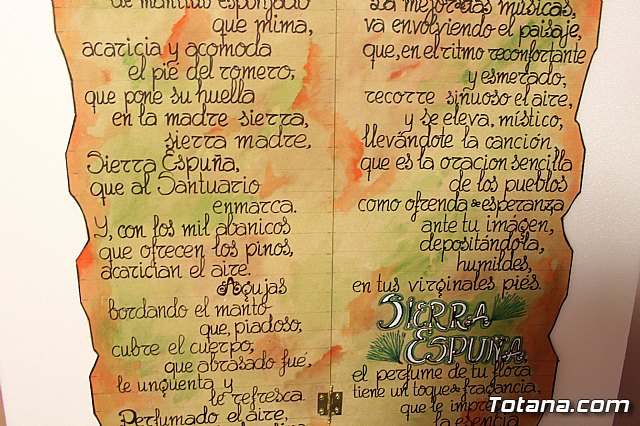 de mantillo esponjado
que mima,
acaricia y acomoda
el pie del romero,
que pone su huella
en la madre sierra,
sierra madre,
Sierra Espuña,
que al Santuario
enmarca.
Y, con los mil abanicos
que ofrecen los pinos,
acarician el aire.
Agujas
bordando el manto
que, piadoso,
cubre el cuerpo,
que abrasado fué,
le unguenta y
le refresca.
Perfumado el aire,
La mejor de las músicas,
va envolviendo el paisaje,
que, en el ritmo reconfortante
y esmerado,
recorre siñuoso el aire,
y se eleva, místico,
llevándote la canción,
que es la oracion sencilla
de los pueblos
como ofrenda de esperanza
ante tu imágen,
depositándola,
humildes,
en tus virginales pies.
SIERRA
ESPUÑA
el perfume de tu flora
tiene un toque de fragancia,
que le
la esencia
Totana.com